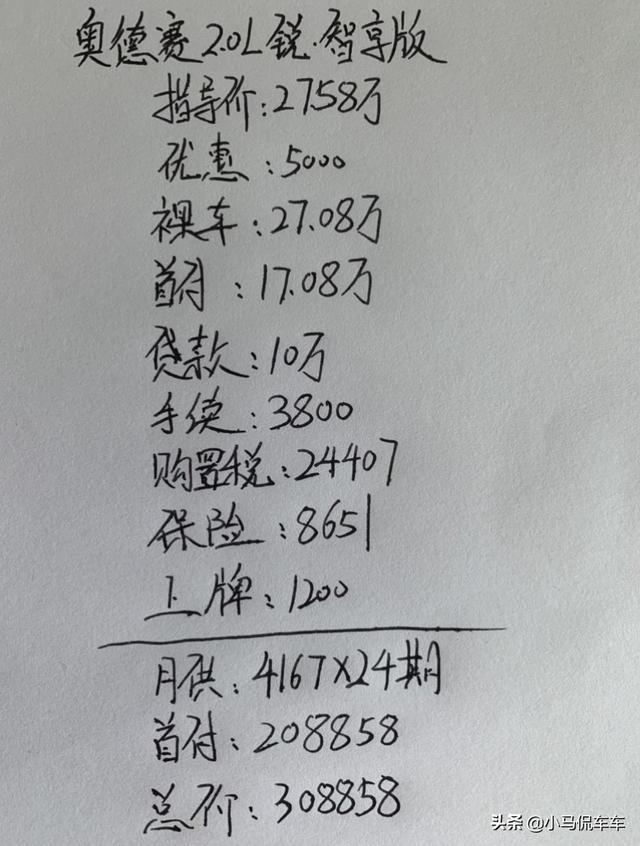 奥德赛2.0L锐·智享版
指导价:27.58万
优惠:5000
裸车:27.08万
首付:17.08万
贷款:10万
手续:3800
购置税:24407
保险:8651
上牌:1200
月供:4167X24期
首付:208858
总价:308858
头条 @小马侃车车